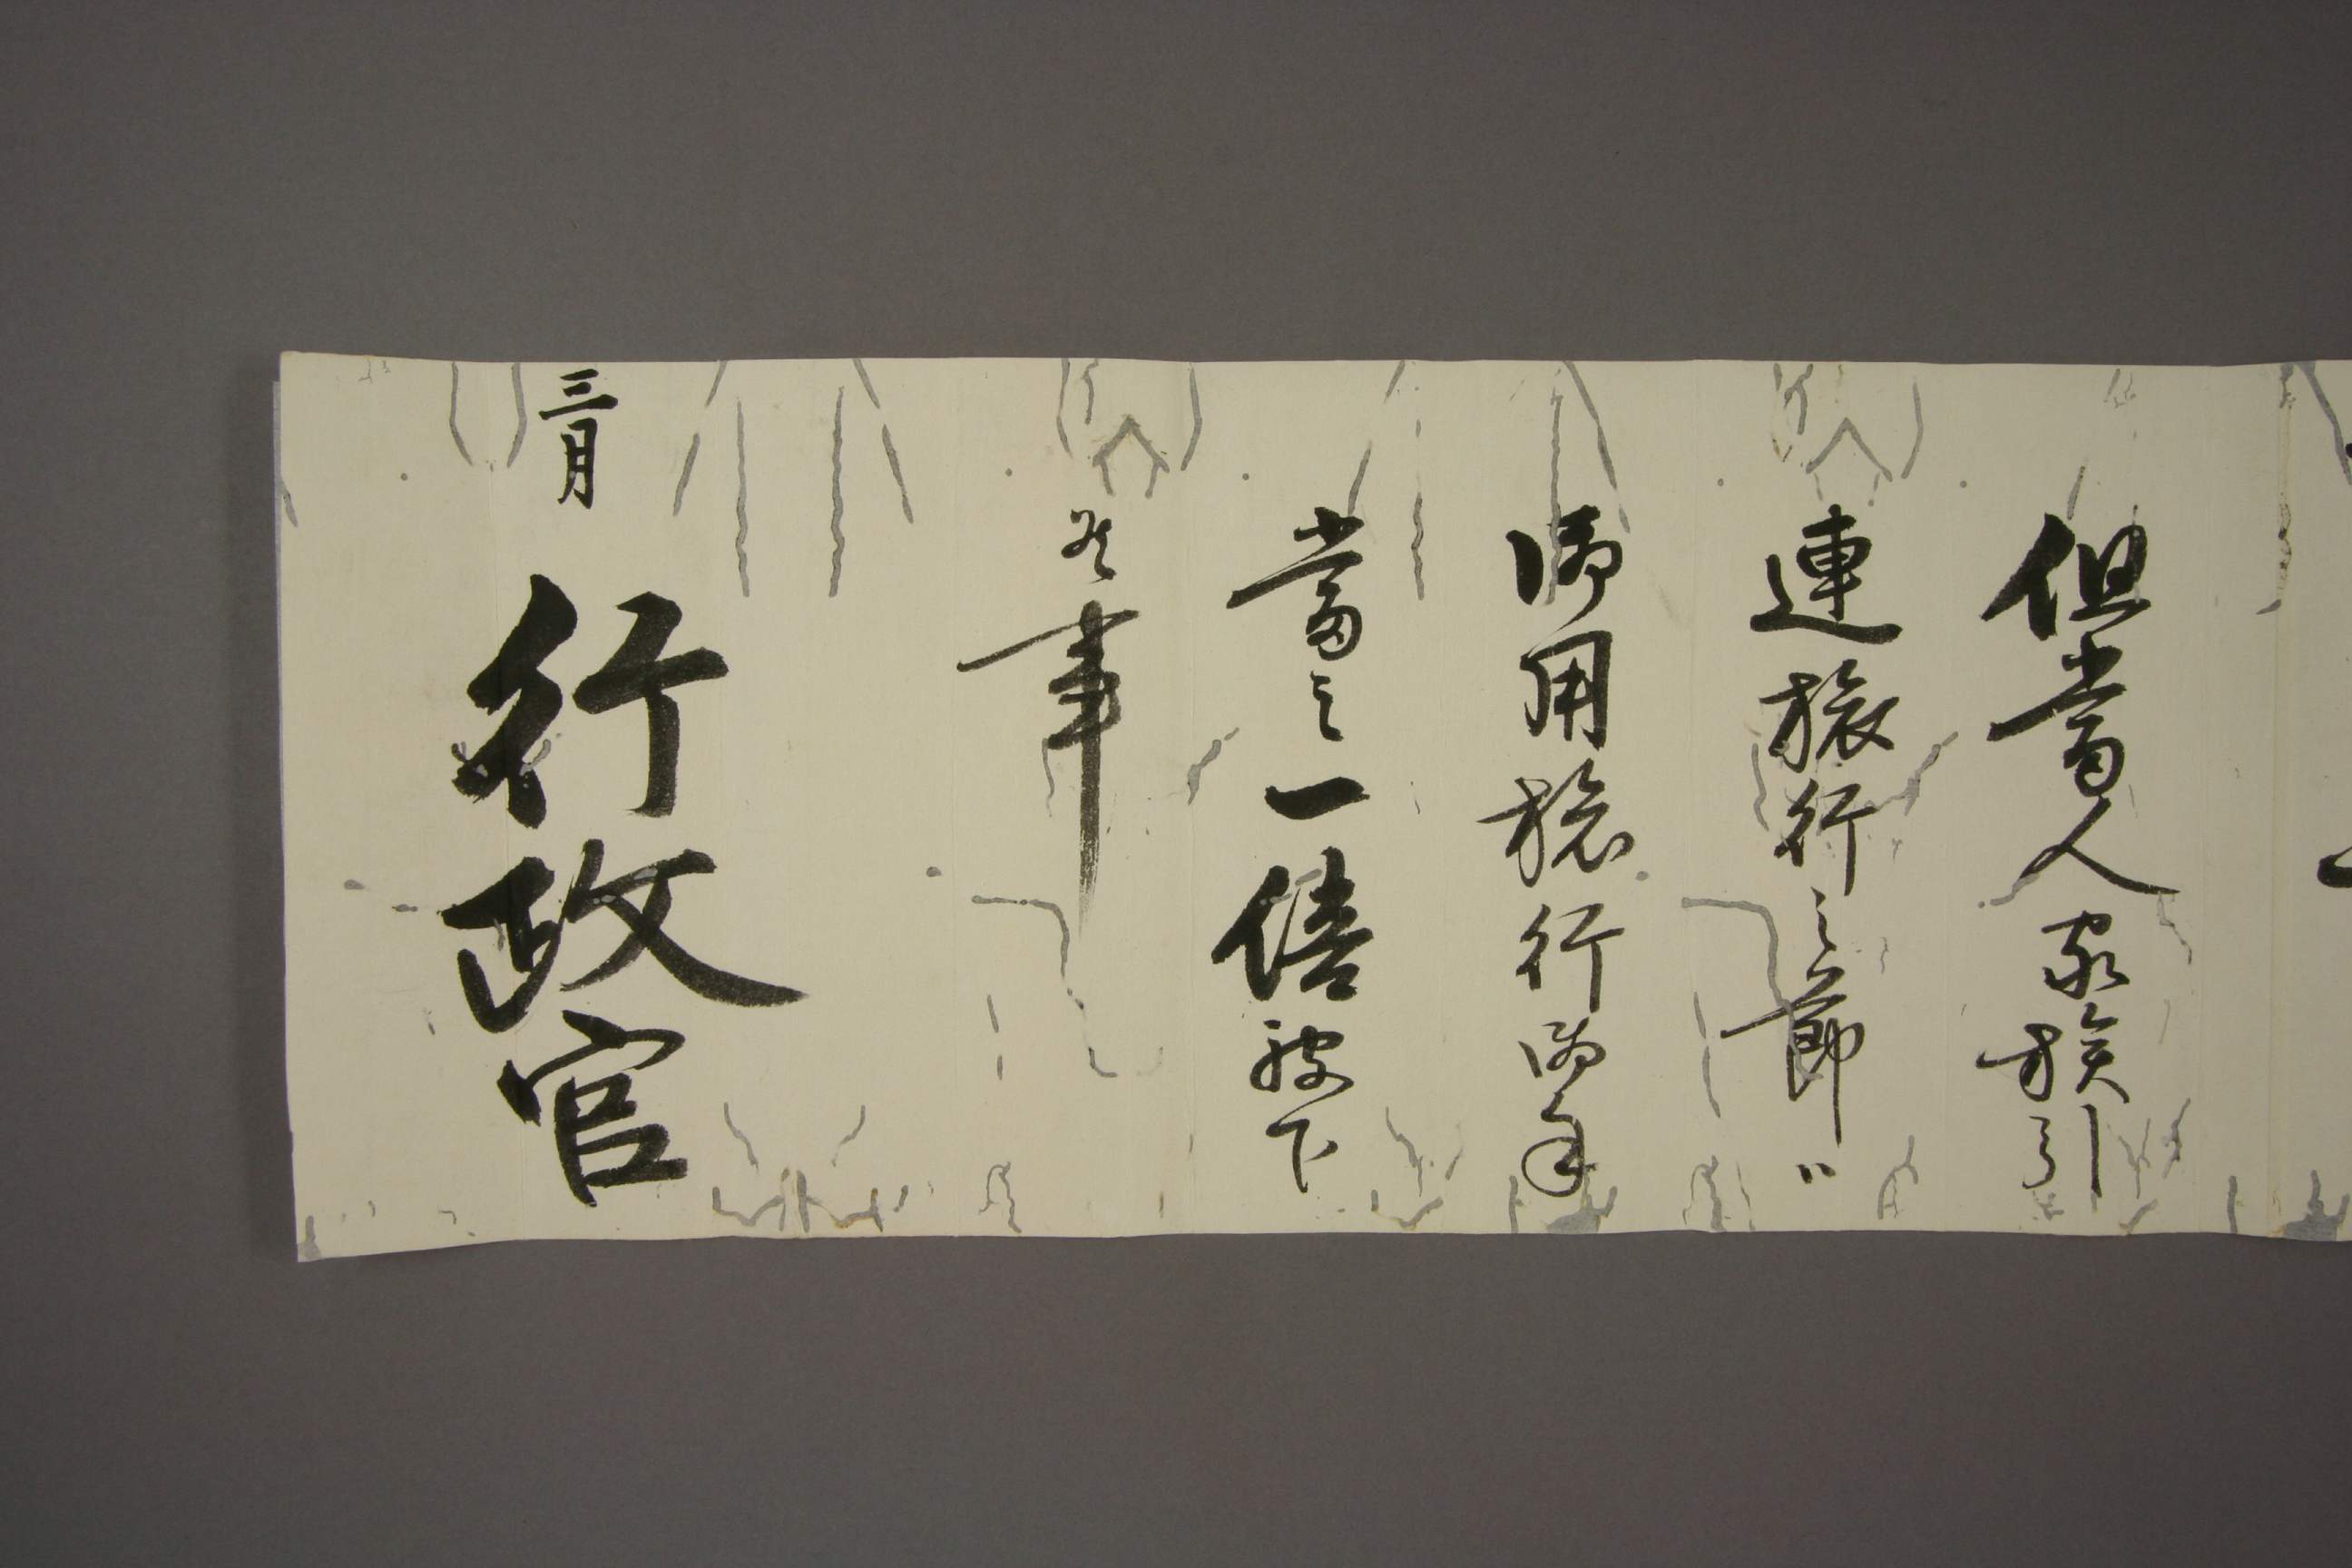 但當人家族引
連旅行之節ハ
御用旅行御手
當之一倍被下
候事
三月
行政官